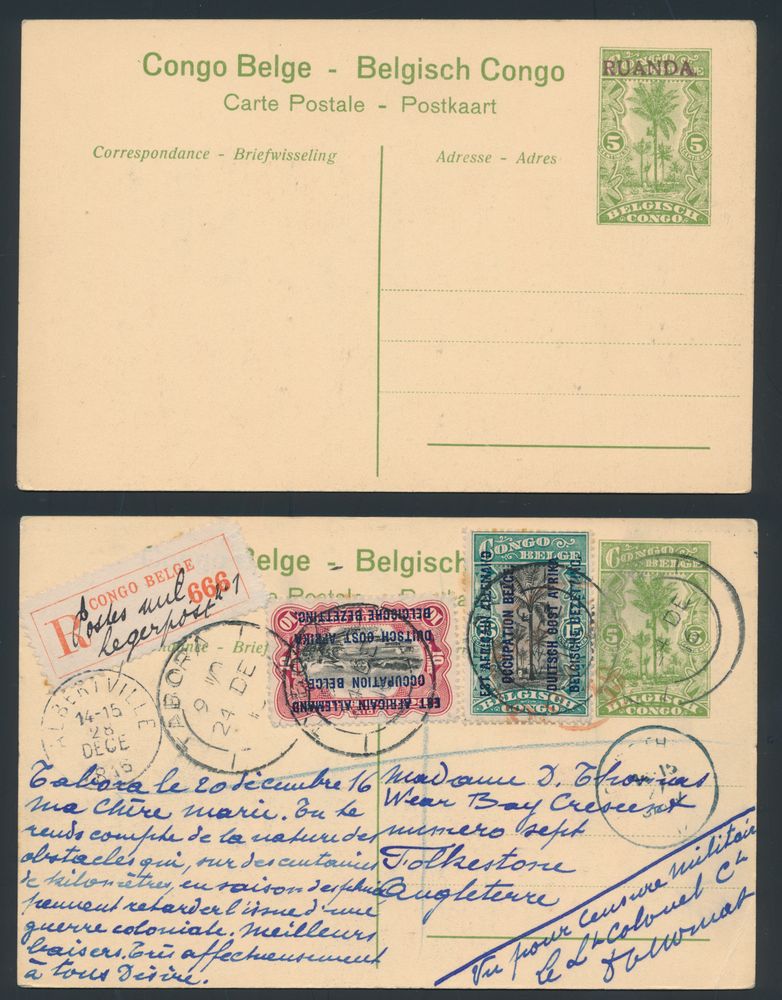 Congo Belge - Belgisch Congo
Carte Postale - Postkaart
RUANDA
5 5
BELGISCH
CONGO.
Correspondance - Briefwisseling
Adresse - Adres
elge - Belgisch
R CONGO BELGE
666
Postes mil
legerpost 1
CONGO
BELGE
EST AFRICAIN ALLEMAND
OCCUPATION BELGE.
DUITSCH OOST AFRIKA
BELGISCHE BEZETTING.
5 5
BELGISCH
CONGO
EST AFRICAIN ALLEMAND
OCCUPATION BELGE.
DUITSCH OOST AFRIKA
BELGISCHE BEZETTING.
10 10
5
BELGISCH
CONGO.
TABORA
9
24 DE
ALBERTVILLE
14-15
28
DECE
1916
Tabora le 20 décembre 16
Ma Chère Marie. Tu te
rends compte de la nature des
obstacles qui, sur des centaines
de kilomètres, en saison des pluies
peuvent retarder l'issue d'une
guerre coloniale. Meilleurs
baisers. Très affectueusement
à tous Désiré.
Madame D. Thomas
Wear Bay Crescent
numero sept
Folkestone
Angleterre
Vu pour censure militaire
le Lt Colonel Ct